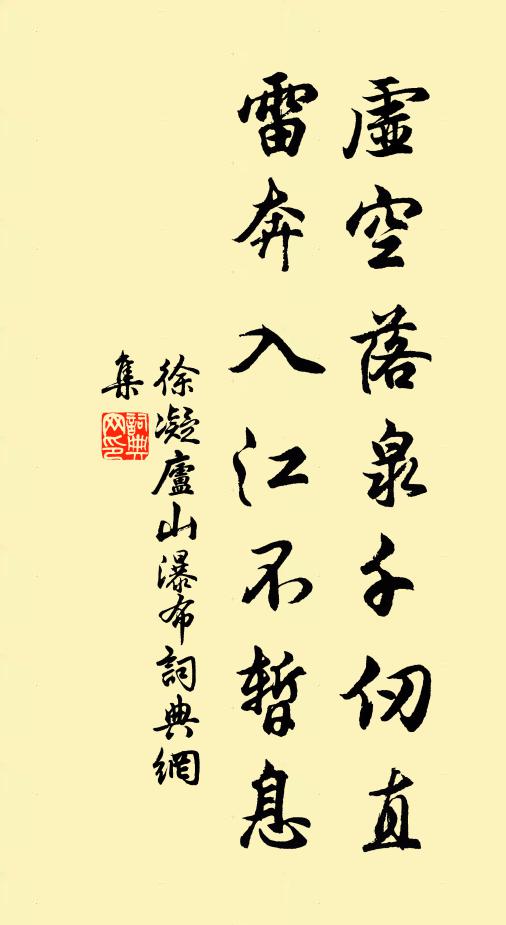 虛空落泉千仞直
雷奔入江不暫息
徐凝廬山瀑布詞典網
集
詞典網印